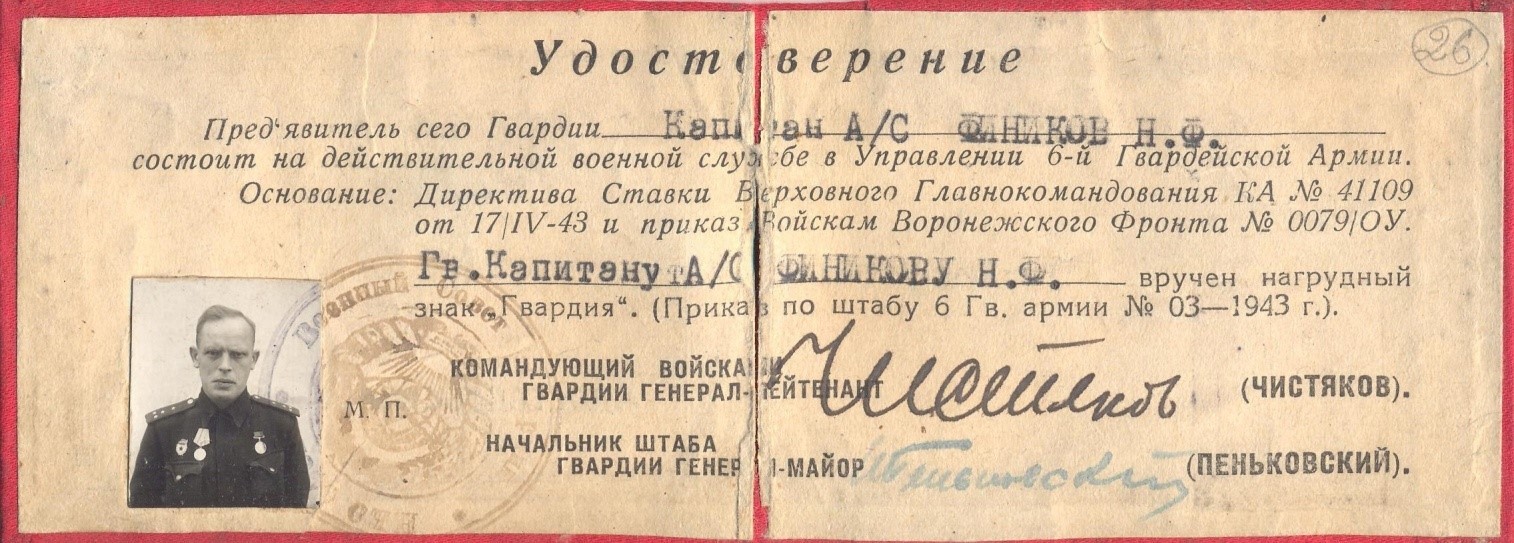 26
Удостоверение
Пред'явитель сего Гвардии Капитан А/С ФИНИКОВ Н.Ф.
состоит на действительной военной службе в Управлении 6-й Гвардейской Армии.
Основание: Директива Ставки Верховного Главнокомандования КА № 41109
от 17/IV-43 и приказ Войскам Воронежского Фронта № 0079/ОУ.
Гв.Капитану А/С ФИНИКОВУ Н.Ф. вручен нагрудный
знак „Гвардия“. (Приказ по штабу 6 Гв. армии № 03—1943 г.).
Военный Совет
КОМАНДУЮЩИЙ ВОЙСКАМИ
ГВАРДИИ ГЕНЕРАЛ-ЛЕЙТЕНАНТ Чистяков (ЧИСТЯКОВ).
М. П.
НАЧАЛЬНИК ШТАБА
ГВАРДИИ ГЕНЕРАЛ-МАЙОР Пеньковский (ПЕНЬКОВСКИЙ).